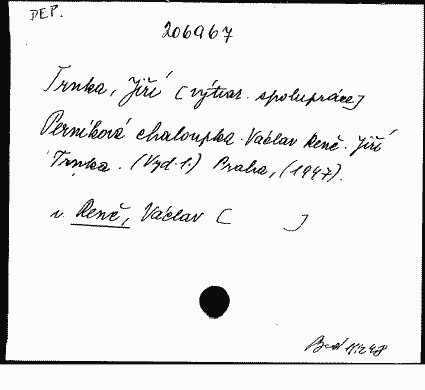 DEP.
206967
Trnka, Jiří [výtvar. spolupráce]
Perníková chaloupka. Václav Renč. Jiří
Trnka. (Vyd. 1.) Praha, (1947).
v. Renč, Václav [ ]